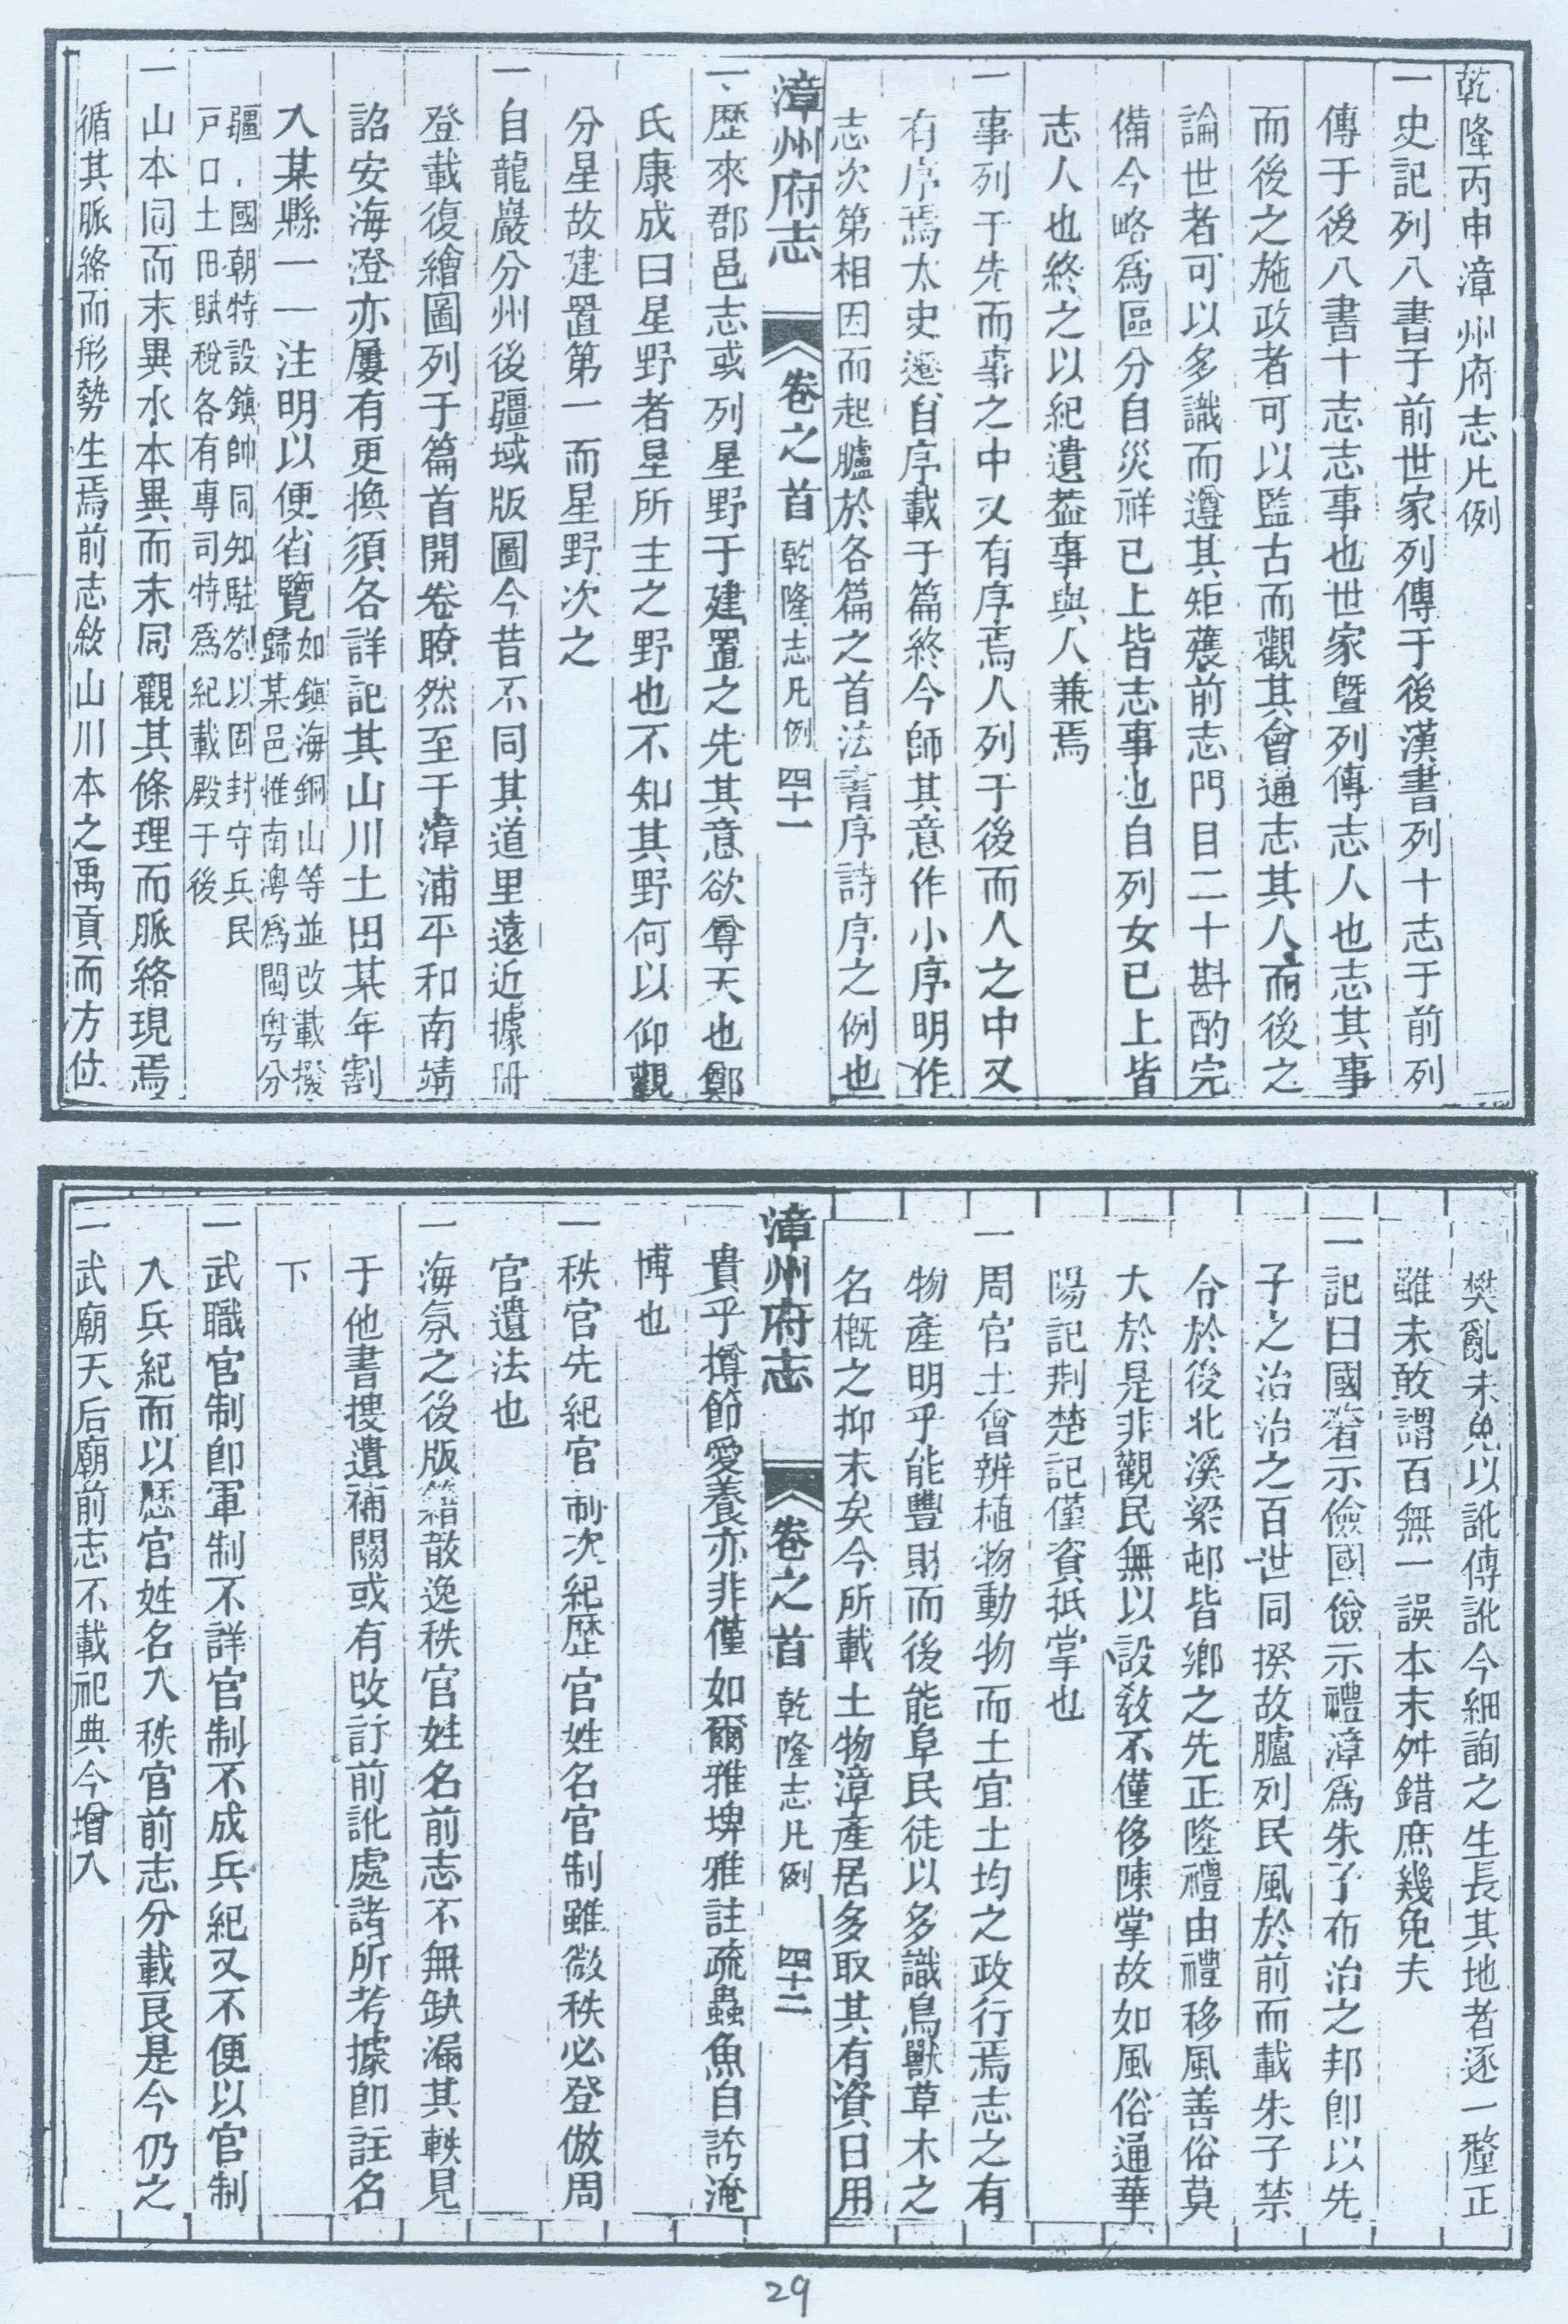 乾隆丙申漳州府志凡例
一史記列八書于前世家列傳于後漢書列十志于前列
傳于後八書十志志事也世家曁列傳志人也志其事
而後之施政者可以監古而觀其會通志其人而後之
論世者可以多識而遵其矩蒦前志門目二十斟酌完
備今略爲區分自災祥已上皆志事也自列女已上皆
志人也終之以紀遺葢事與人兼焉
一事列于先而事之中又有序焉人列于後而人之中又
有序焉太史遷自序載于篇終今師其意作小序明作
志次第相因而起臚於各篇之首法書序詩序之例也
漳州府志 卷之首 乾隆志凡例 四十一
一歷來郡邑志或列星野于建置之先其意欲尊天也鄭
氏康成曰星野者星所主之野也不知其野何以仰觀
分星故建置第一而星野次之
一自龍巖分州後疆域版圖今昔不同其道里遠近據册
登載復繪圖列于篇首開卷瞭然至于漳浦平和南靖
詔安海澄亦屢有更換須各詳記其山川土田某年割
入某縣一一注明以便省覽如鎮海銅山等並改載撥
歸某邑惟南澳爲閩粤分
疆國朝特設鎮帥同知駐劄以固封守兵民
戸口土田賦稅各有專司特爲紀載殿于後
一山本同而末異水本異而末同觀其條理而脈絡現焉
循其脈絡而形勢生焉前志敘山川本之禹貢而方位
樊亂未免以訛傳訛今細詢之生長其地者逐一釐正
雖未敢謂百無一誤本末舛錯庶幾免夫
一記曰國奢示儉國儉示禮漳爲朱子布治之邦卽以先
子之治治之百世同揆故臚列民風於前而載朱子禁
令於後北溪梁邨皆鄉之先正隆禮由禮移風善俗莫
大於是非觀民無以設敎不僅侈陳掌故如風俗通華
陽記荆楚記僅資抵掌也
一周官土會辨植物動物而土宜土均之政行焉志之有
物產明乎能豐財而後能阜民徒以多識鳥獸草木之
名槪之抑末矣今所載土物漳產居多取其有資日用
漳州府志 卷之首 乾隆志凡例 四十二
貴乎撙節愛養亦非僅如爾雅埤雅註疏蟲魚自誇淹
博也
一秩官先紀官制次紀歴官姓名官制雖微秩必登倣周
官遺法也
一海氛之後版籍散逸秩官姓名前志不無缺漏其軼見
于他書搜遺補闕或有改訂前訛處諸所考據卽註名
下
一武職官制卽軍制不詳官制不成兵紀又不便以官制
入兵紀而以歴官姓名入秩官前志分載良是今仍之
一武廟天后廟前志不載祀典今增入
29